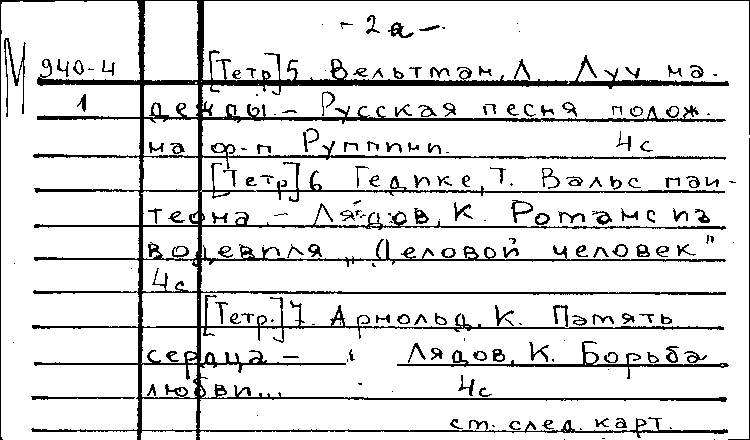 - 2а -
М 940-4 [Тетр] 5. Вельтман, Л. Луч на-
1 дежды. - Русская песня полож.
на ф-п Руппини. 4с
[Тетр] 6 Гедике, Т. Вальс пан-
теона. - Лядов, К. Романс из
водевиля „Деловой человек"
4с
[Тетр.] 7. Арнольд, К. Память
сердца - Лядов, К. Борьба
любви... 4с
см. след. карт.